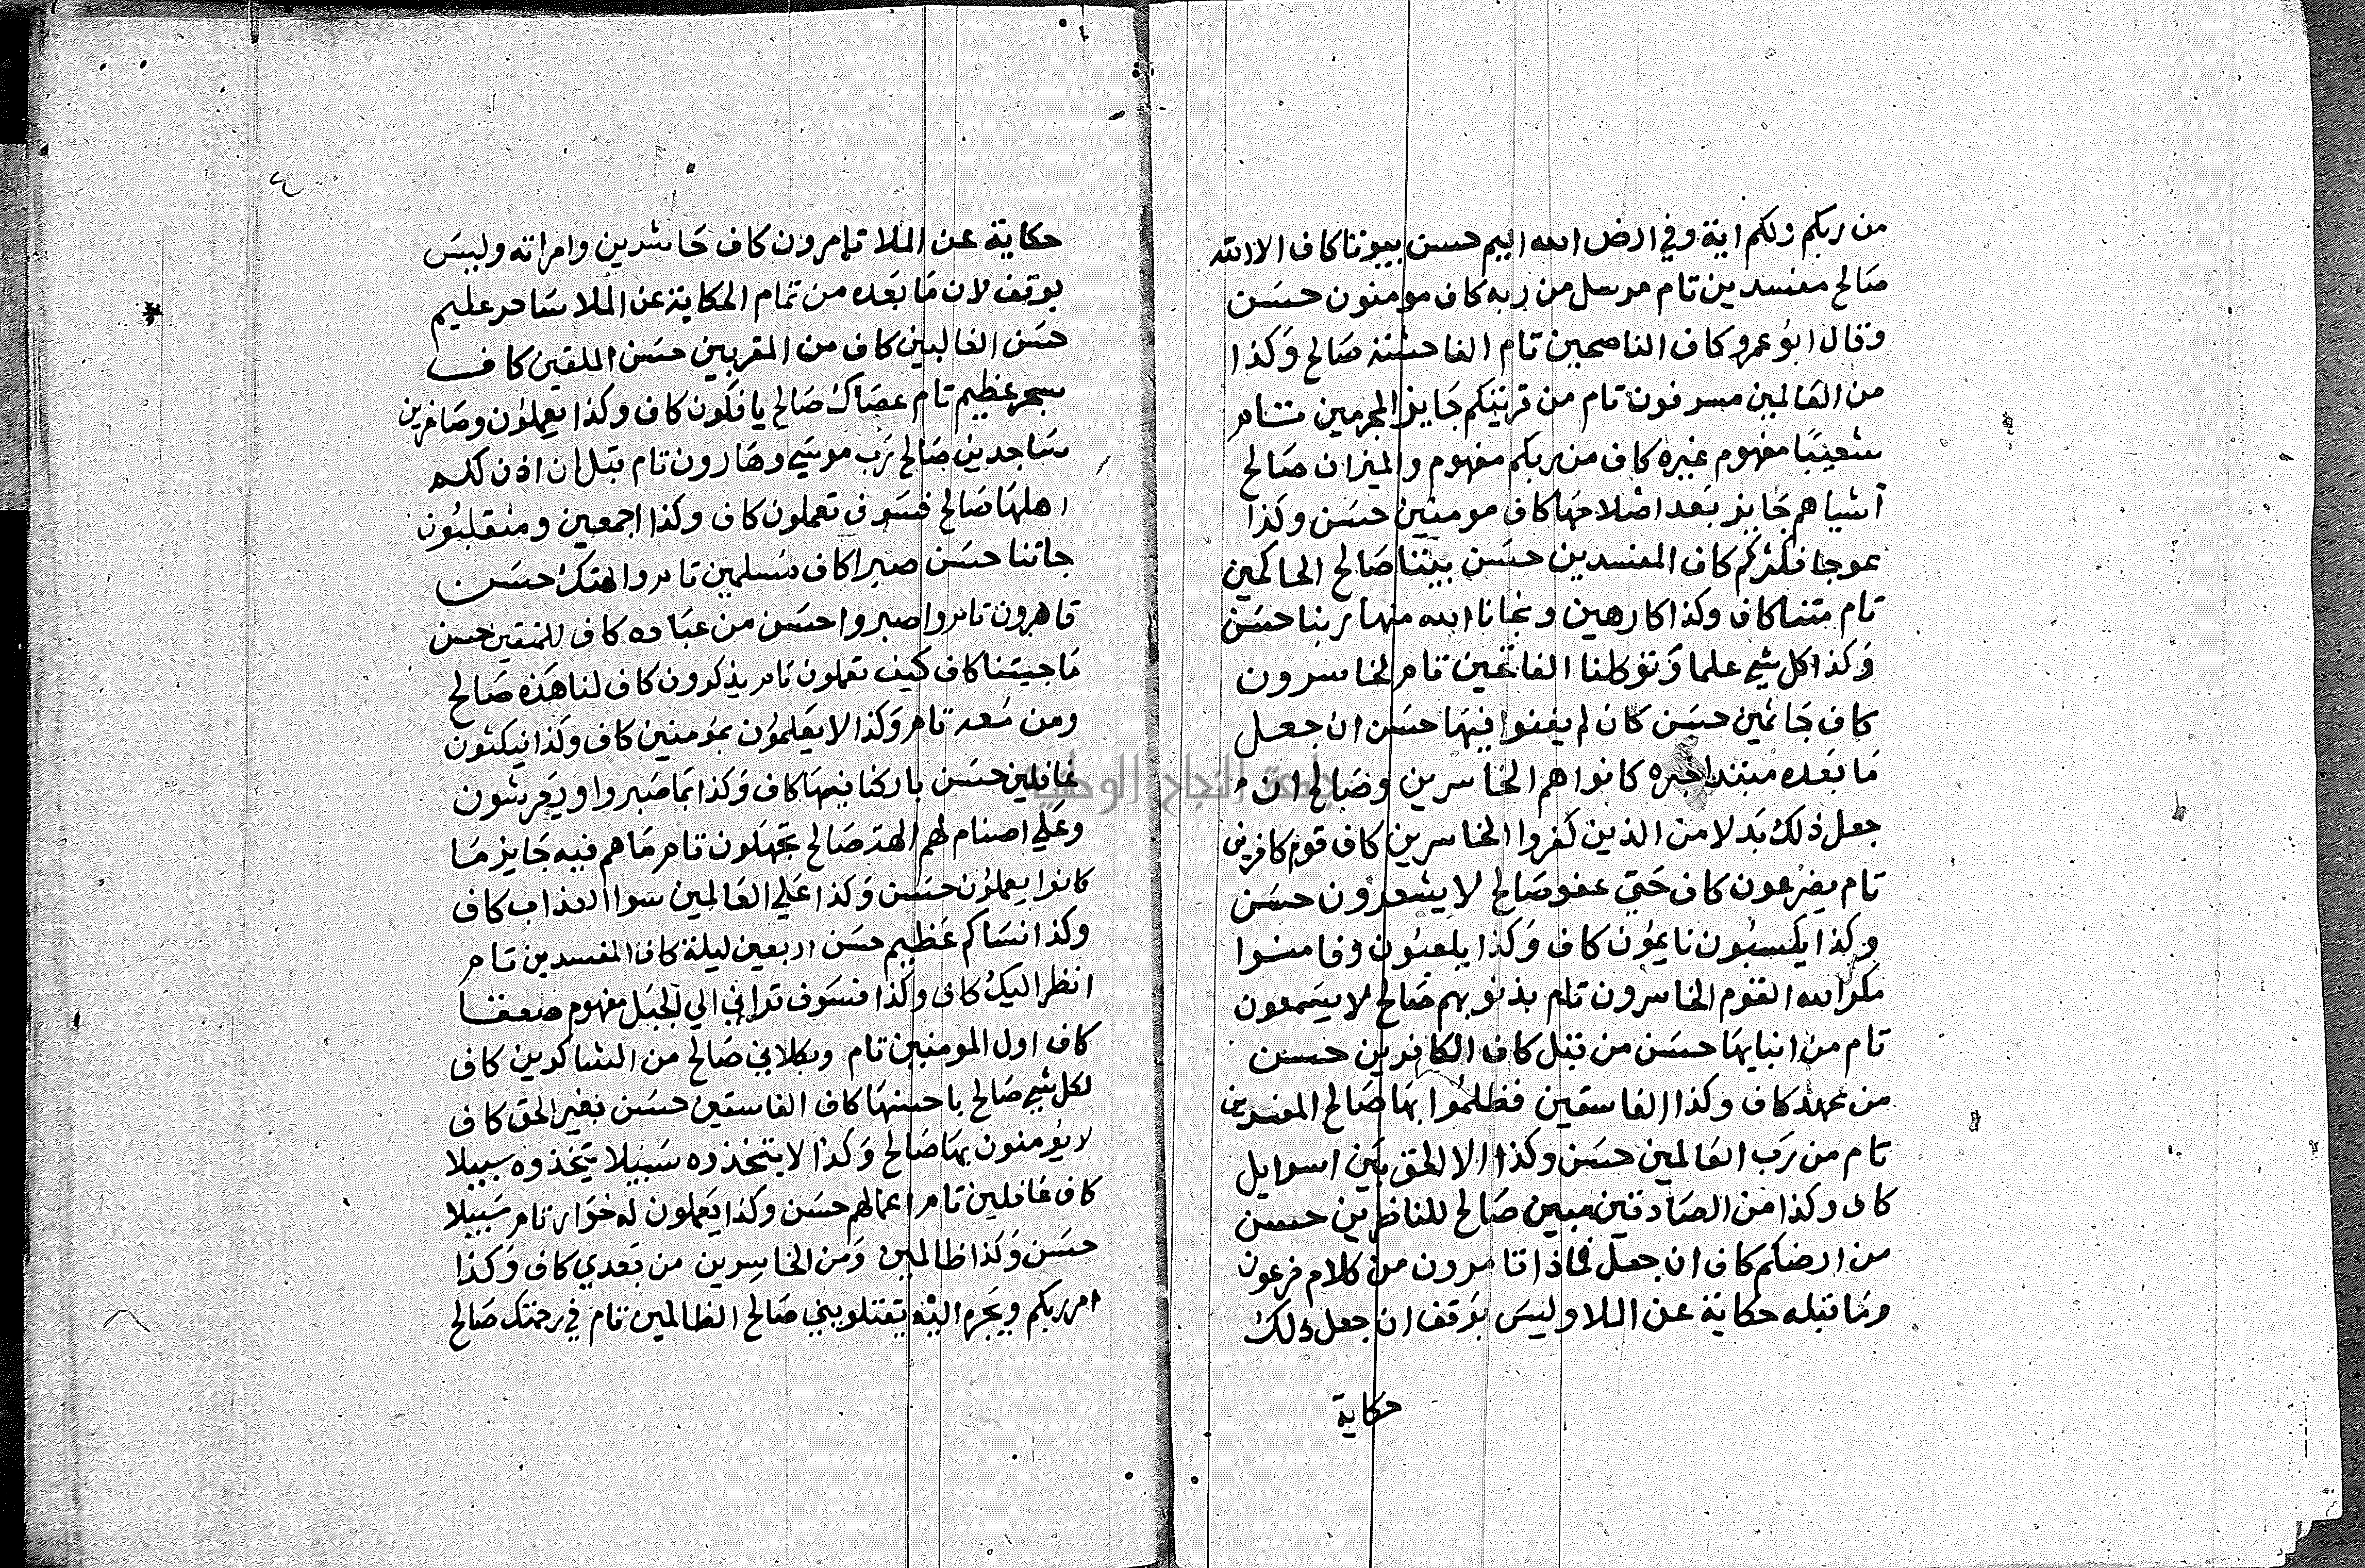 من ربكم ولكم اية وفي ارض الله اليم حسن بيوتا كاف الا الله
صالح مفسدين تام مرسل من ربه كاف مومنون حسن
وقال ابو عمرو كاف الناصحين تام الفاحشة صالح وكذا
من العالمين مسرفون تام من قريتكم جايز المجرمين تام
شعيبا مفهوم غيره كاف من ربكم مفهوم والميزان صالح
اشياهم جايز بعد اصلاحها كاف مومنين حسن وكذا
عوجا فكثركم كاف المفسدين حسن بيننا صالح الحاكمين
تام متنا كاف وكذا كارهين ونجانا الله منها ربنا حسن
وكذا كل شي علما وتوكلنا الفاتحين تام لخاسرون
كاف جاثمين حسن كان لم يغنوا فيها حسن ان جعل
ما بعده مبتدا خبره كانوا هم الخاسرين وصالح ان
جعل ذلك بدلا من الذين كفروا الخاسرين كاف قوم كافرين
تام يضرعون كاف حتي عفو صالح لا يشعرون حسن
وكذا يكسبون نايمون كاف وكذا يلعبون وفامنوا
مكر الله القوم الخاسرون تام بذنوبهم صالح لا يسمعون
تام من انبايها حسن من قبل كاف الكافرين حسن
من عهد كاف وكذا الفاسقين فظلموا بها صالح المفسدين
تام من رب العالمين حسن وكذا الا الحق بني اسرايل
كاف وكذا من الصادقين مبين صالح للناظرين حسن
من ارضكم كاف ان جعل فماذا تامرون من كلام فرعون
وما قبله حكاية عن الملا وليس بوقف ان جعل ذلك
حكاية
حكاية عن الملا تامرون كاف حاشدين وامراته وليس
بوقف لان ما بعده من تمام الحكاية عن الملا ساحر عليم
حسن الغالبين كاف من المقربين حسن الملقين كاف
بسحر عظيم تام عصاك صالح يافكون كاف وكذا يعملون وصاغرين
ساجدين صالح رب موسي وهارون تام قبل ان اذن لكم
اهلها صالح فسوف تعملون كاف وكذا اجمعين ومنقلبون
جاتنا حسن صبرا كاف مسلمين تام والهتك حسن
قاهرون تام واصبروا حسن من عباده كاف للمتقين حسن
ما جيتنا كاف كيف تعملون تام يذكرون كاف لنا هذه صالح
ومن معه تام وكذا لا يعلمون بمومنين كاف وكذا ينكثون
غافلين حسن باركنا فيها كاف وكذا بما صبروا ويعرشون
وعلي اصنام لهم الهة صالح تجهلون تام ما هم فيه جايز ما
كانوا يعملون حسن وكذا علي العالمين سوا العذاب كاف
وكذا نساكم عظيم حسن اربعين ليلة كاف المفسدين تام
انظر اليك كاف وكذا فسوف تراني الي الجبل مفهوم صعقا
كاف اول المومنين تام وبكلامي صالح من الشاكرين كاف
لكل شي صالح باحسنها كاف الفاسقين حسن بغير الحق كاف
لا يومنون بها صالح وكذا لا يتخذوه سبيلا يتخذوه سبيلا
كاف غافلين تام اعمالهم حسن وكذا يعملون له خوار تام سبيلا
حسن وكذا ظالمين ومن الخاسرين من بعدي كاف وكذا
امر ربكم ويجره اليه يقتلونني صالح الظالمين تام في رحمتك صالح